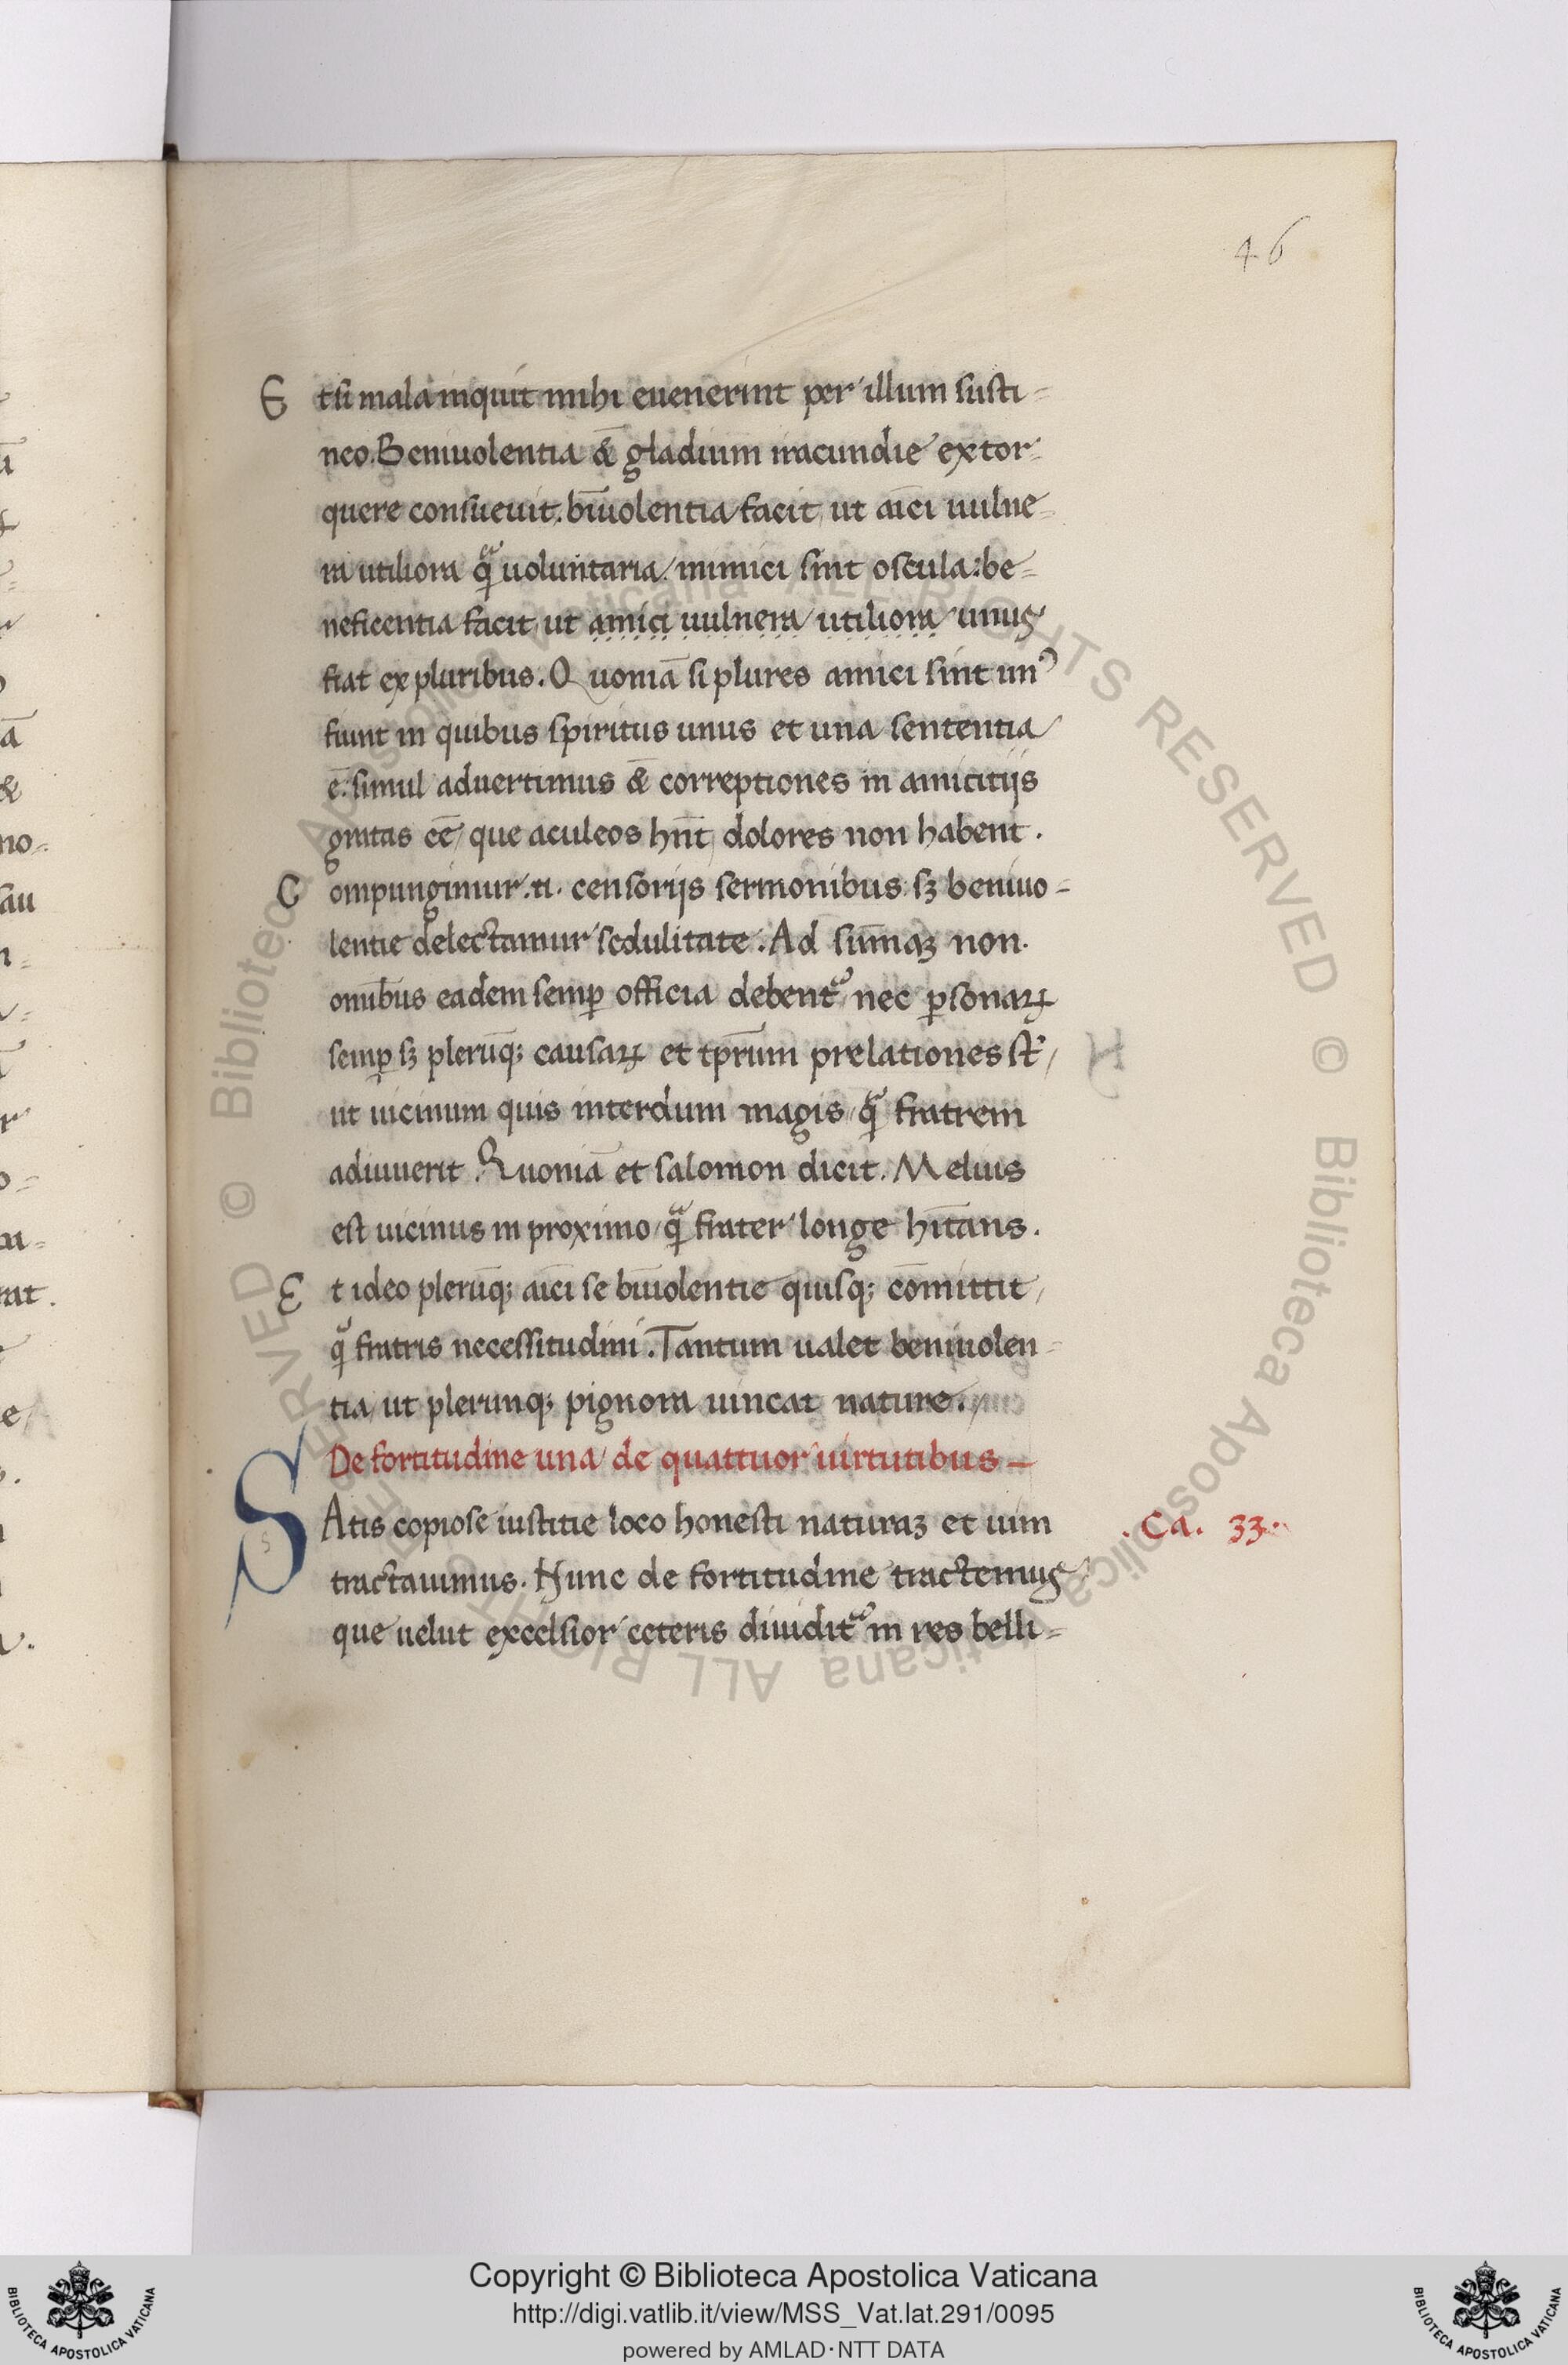 46
Et si mala inquit mihi euenerint per illum susti-
neo. Beniuolentia & gladium iracundie extor-
quere consueuit. bīuolentia facit, ut aīci uulne-
ra utiliora qᷓ uoluntaria inimici sint oscula: be-
neficentia facit, ut amici uulnera utiliora unus
fiat ex pluribus. Quoniā si plures amici sint unꝰ
fiunt in quibus spiritus unus et una sententia
ē. simul aduertimus & correptiones in amicitijs
gratas eē, que aculeos hn̄t, dolores non habent.
Compungimur .n. censorijs sermonibus sꝫ beniuo-
lentie delectamur sedulitate. Ad sūmaꝫ non
omībus eadem semꝑ officia debentᷣ, nec ꝑsonaꝝ
semꝑ sꝫ plerūqꝫ causaꝝ et tp̄rum prelationes st̄,
ut uicinum quis interdum magis qᷓ fratrem
adiuuerit. Quoniā et salomon dicit. Melius
est uicinus in proximo, qᷓ frater longe hītans.
Et ideo plerūqꝫ aīci se bīuolentie quisqꝫ cōmittit,
qᷓ fratris necessitudini. Tantum ualet beniuolen-
tia, ut plerunqꝫ pignora uincat nature.
De fortitudine una de quattuor uirtutibus —
SAtis copiose iustitie loco honesti naturaꝫ et uim
.Ca. 33.
tractauimus. Nunc de fortitudine tractemus
que uelut excelsior ceteris diuiditᷣ in res belli-
Copyright © Biblioteca Apostolica Vaticana
http://digi.vatlib.it/view/MSS_Vat.lat.291/0095
powered by AMLAD·NTT DATA